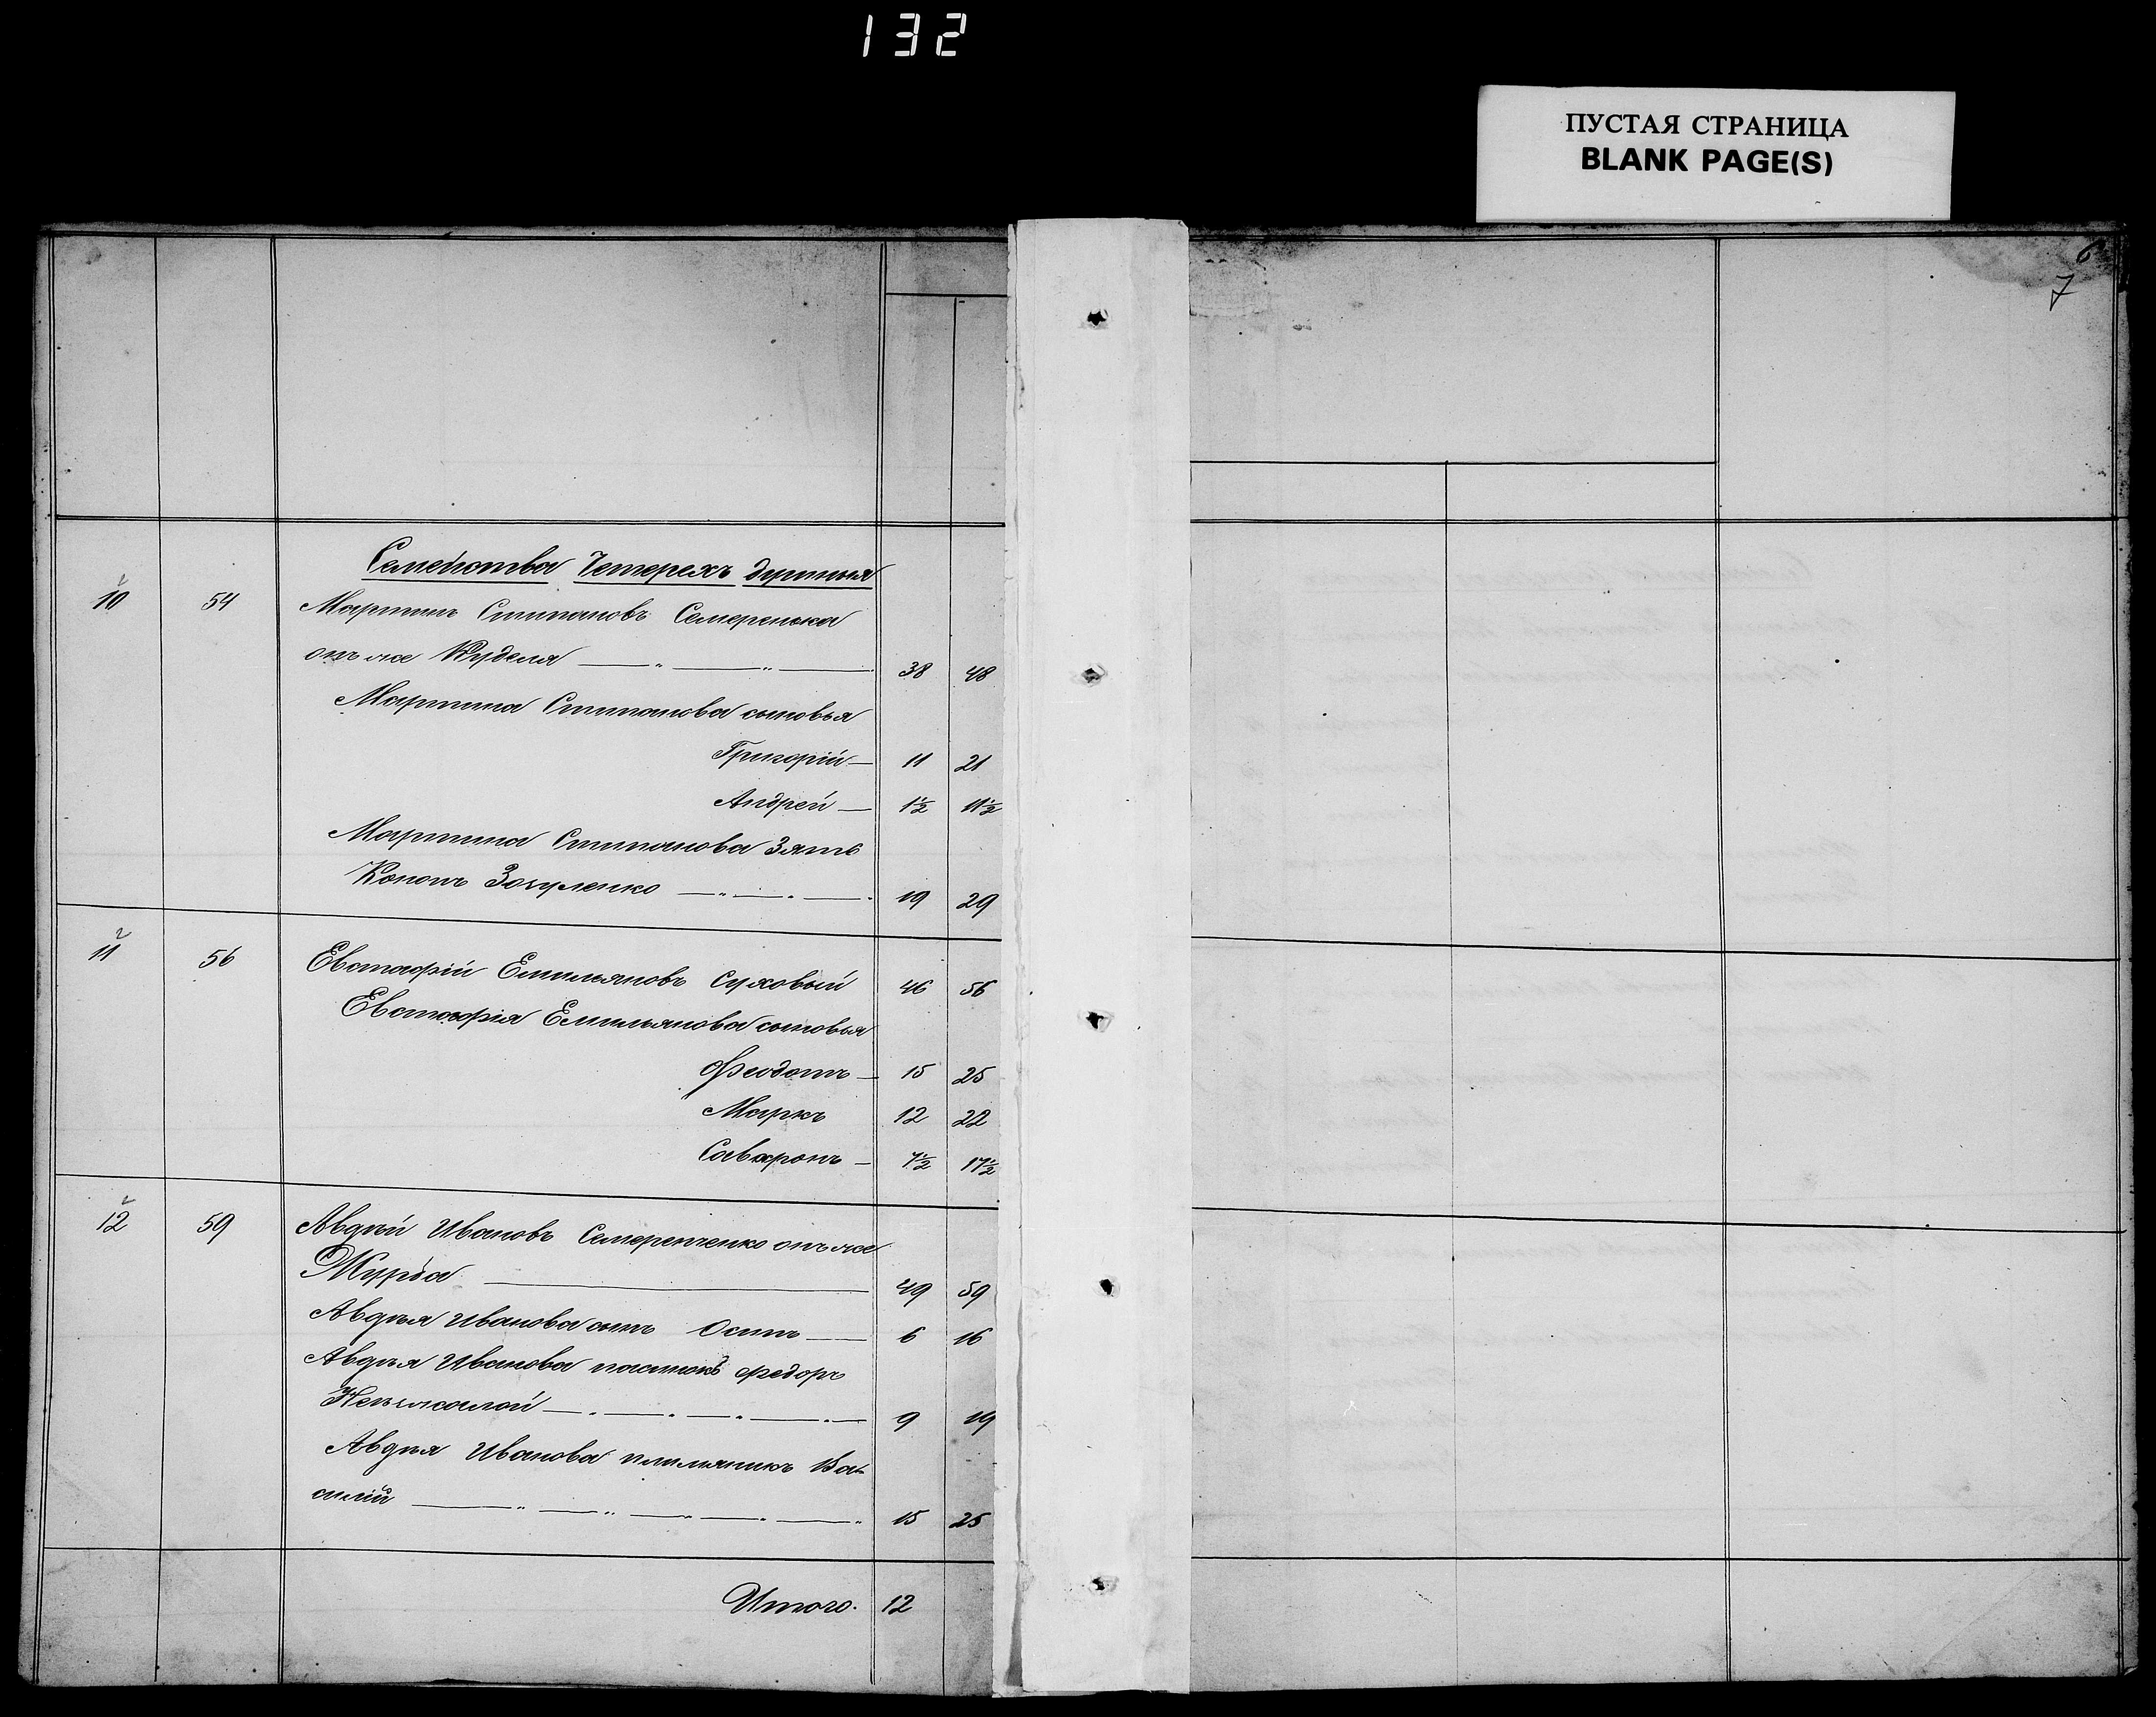 132
ПУСТАЯ СТРАНИЦА
BLANK PAGE(S)
6
7
Семейства Четерехъ душныя
10 54 Мартинъ Степановъ Семеренька
онъ же Куделя 38 48
Мартина Степанова сыновья
Григорій 11 21
Андрей 1½ 11½
Мартина Степанова Зять
Кононъ Зозуленко 19 29
11 56 Евстафій Емельяновъ Суховый 46 56
Евстафія Емельянова сыновья
Феодотъ 15 25
Маркъ 12 22
Савхронъ 7½ 17½
12 59 Авдѣй Ивановъ Семеренченко онъ же
Журба 49 59
Авдѣя Иванова сынъ Осипъ 6 16
Авдѣя Иванова пасынокъ Федоръ
9 19
Авдѣя Иванова племяникъ Ва-
силій 15 25
Итого. 12